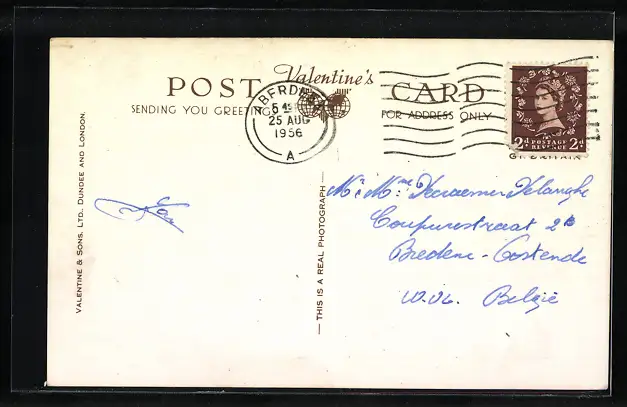 POST Valentine's CARD
SENDING YOU GREETINGS FOR ADDRESS ONLY
ABERDEEN
25 AUG
1956
A
2d POSTAGE REVENUE 2d
GT. BRITAIN
VALENTINE & SONS, LTD. DUNDEE AND LONDON.
— THIS IS A REAL PHOTOGRAPH —
Mr & Mme:
Coupurestraat
Bredene - Oostende
W.Vl. België